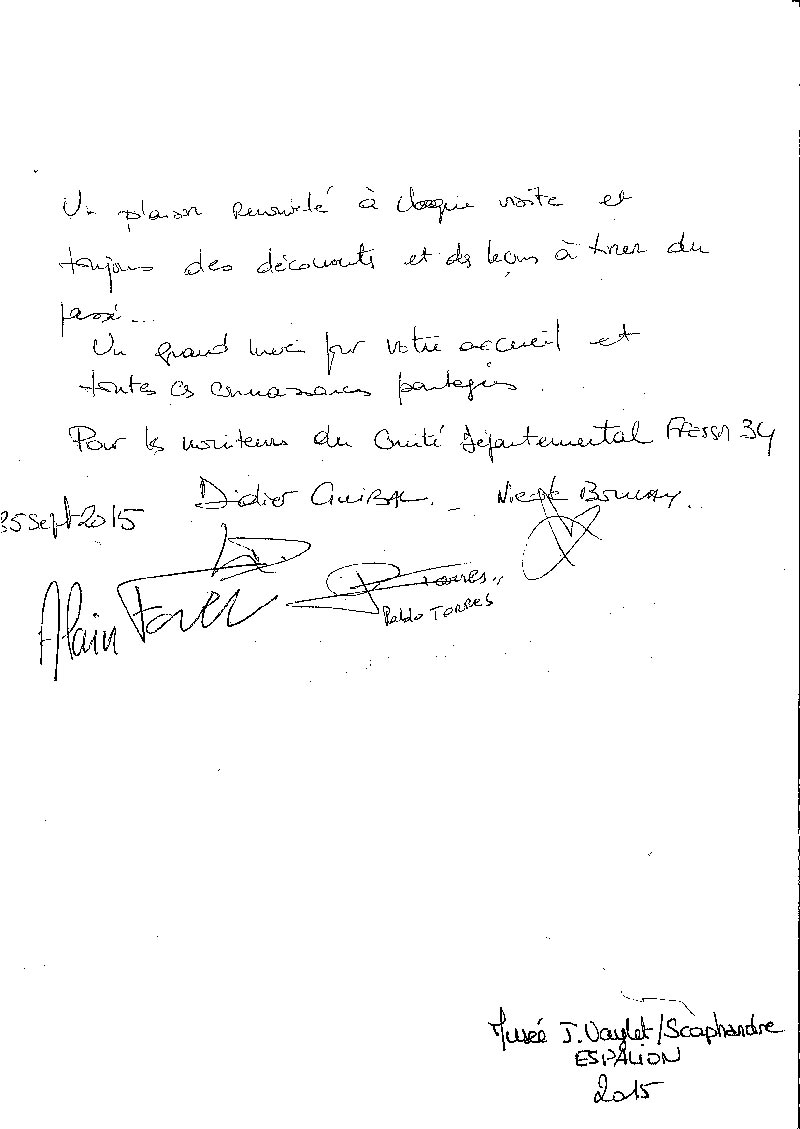 Un plaisir renouvelé à chaque visite et
toujours des découverts et des leçons à tirer du
passé...
Un grand merci pour votre accueil et
toutes ces connaissances partagées.
Pour les moniteurs du Comité Départemental FFESSM 34
Didier GUIBAL. -
25 Sept 2015
Alain
Torres
Pablo TORRES
Musée J. Vaylet/Scaphandre
ESPALION
2015